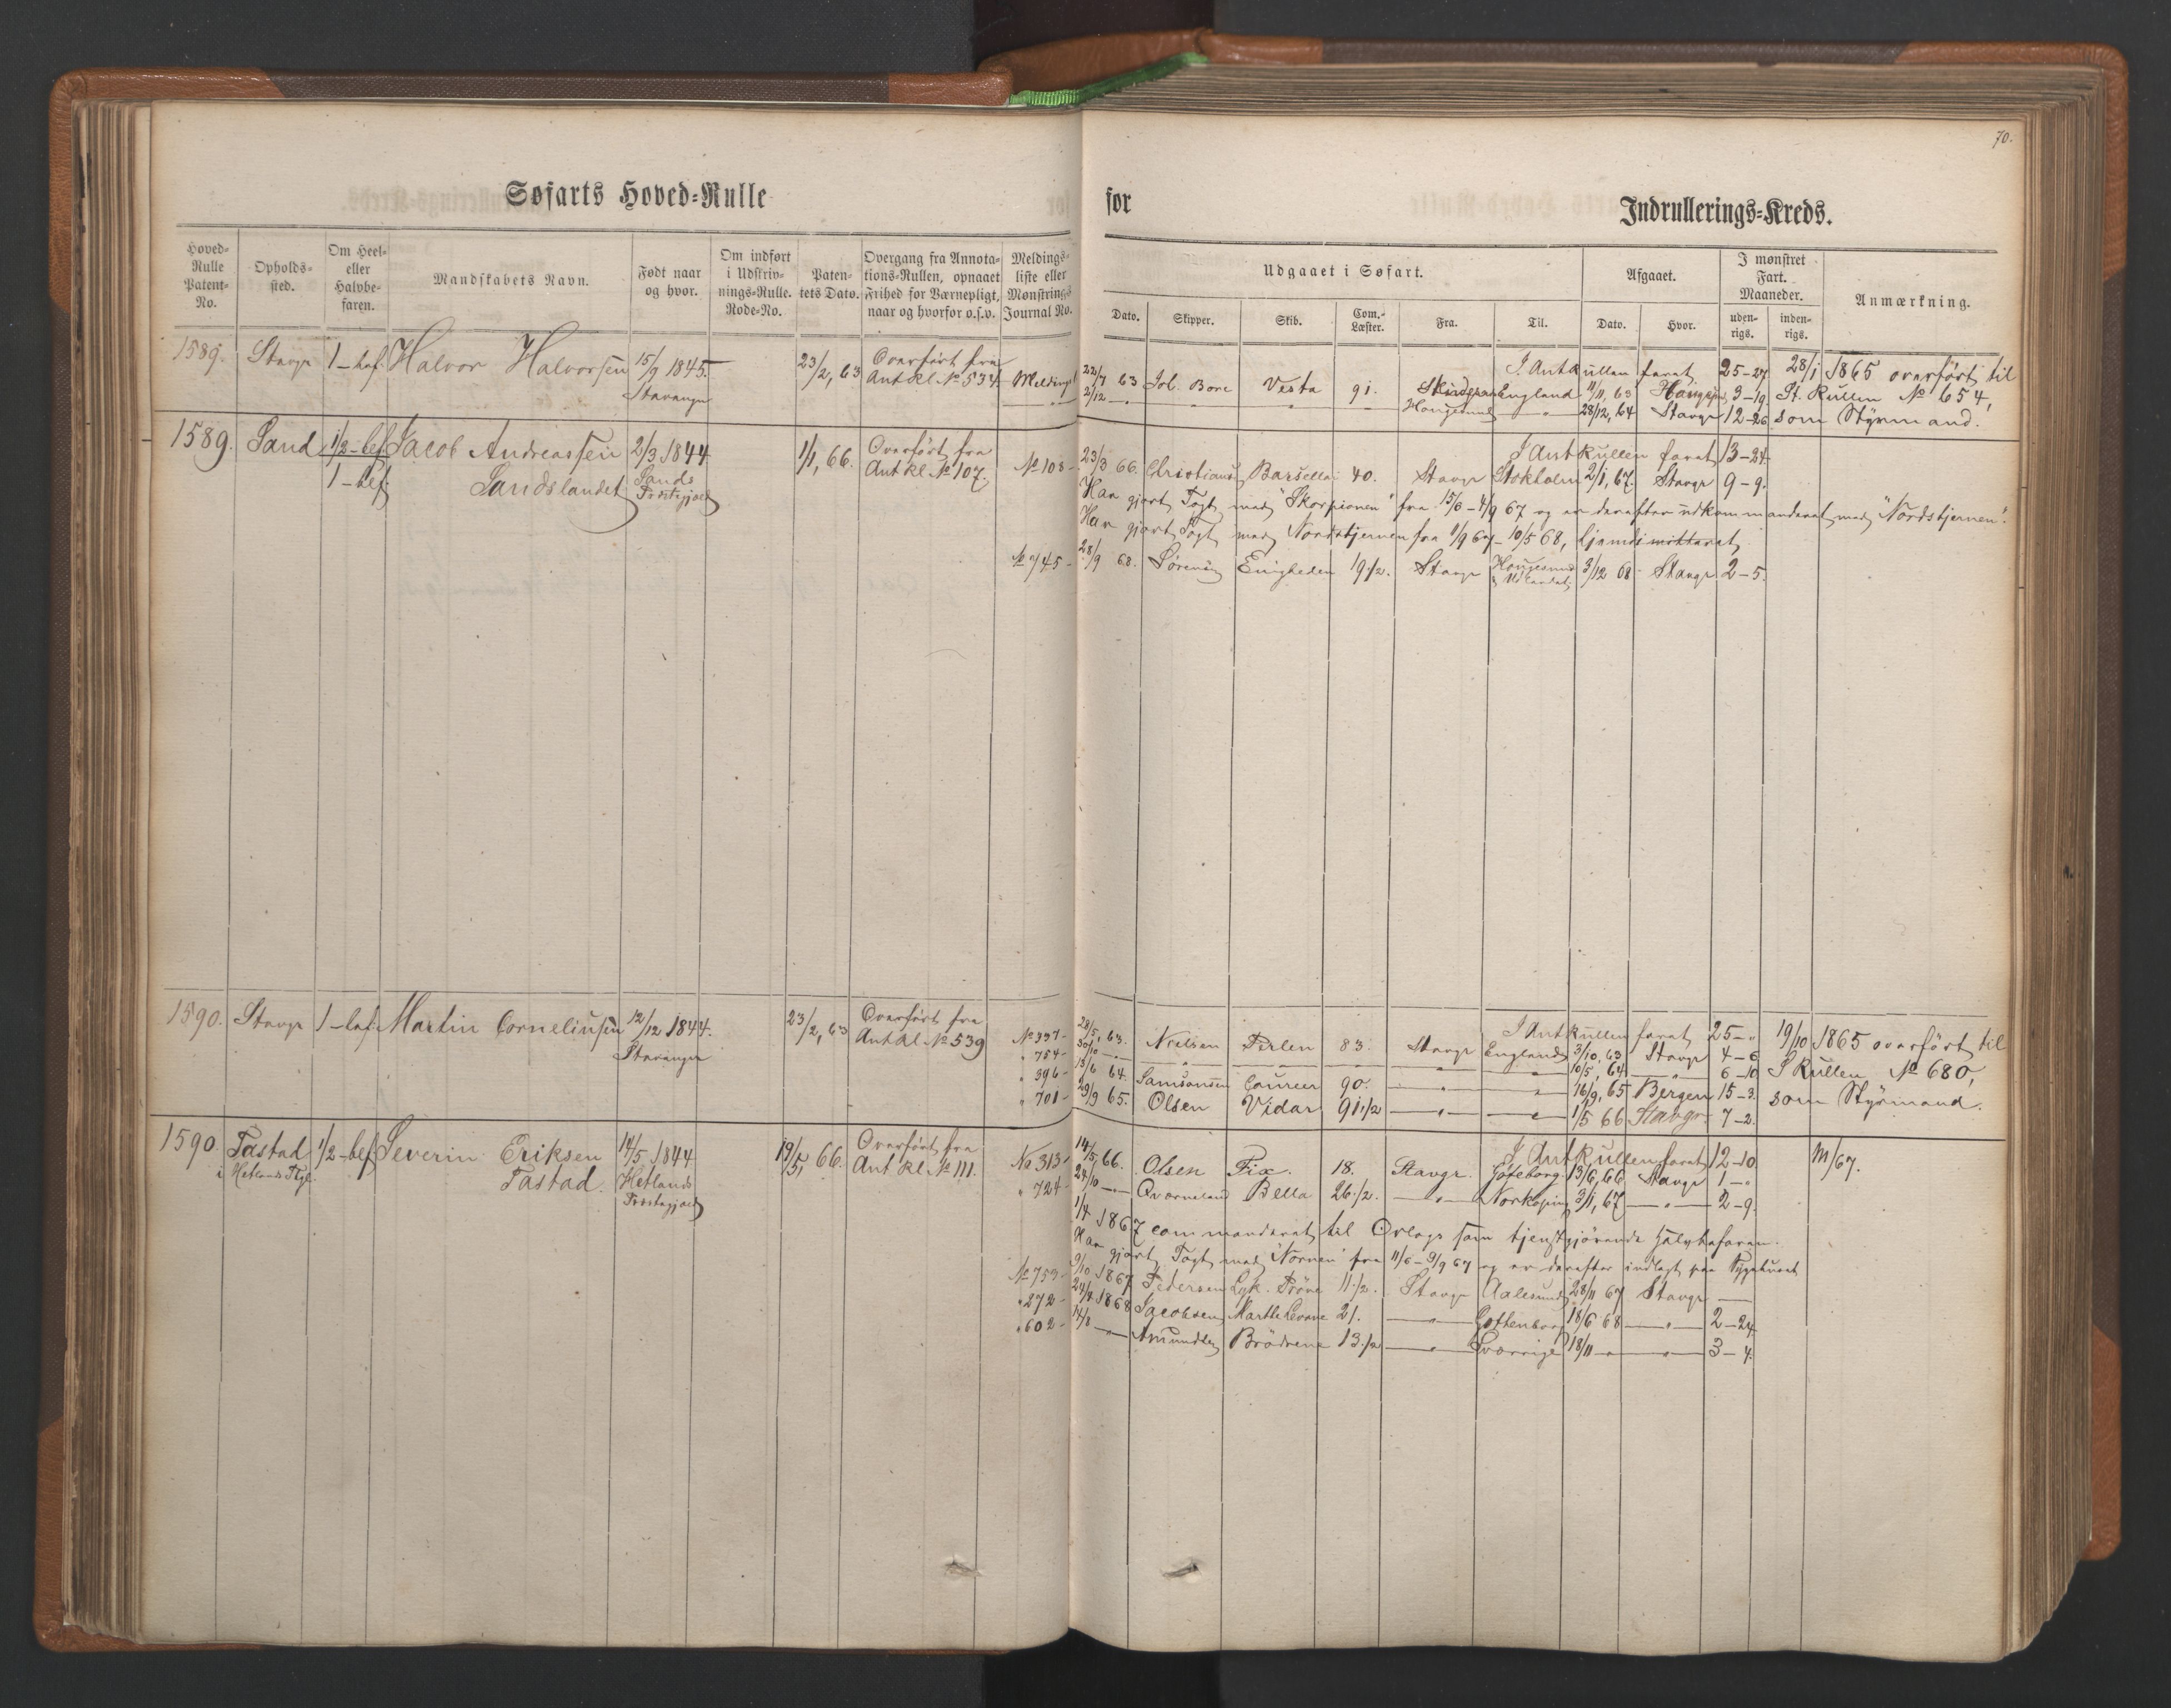 70.
Søfarts Hoved-Rulle
for
Indrullerings-Kreds.
Hoved-Rulle Patent-No.
Opholds-sted.
Om Heel- eller Halvbe-faren.
Mandskabets Navn.
Født naar og hvor.
Om indført i Udskriv-nings-Rulle. Rode-No.
Paten-tets Dato.
Overgang fra Annota-tions-Rullen, opnaaet Frihed for Værnepligt, naar og hvorfor o.s.v.
Meldings-liste eller Mønstrings Journal No.
Udgaaet i Søfart.
Dato.
Skipper.
Skib.
Com.-Læster.
Fra.
Til.
Afgaaet.
Dato.
Hvor.
I mønstret Fart. Maaneder.
uden-rigs.
inden-rigs.
Anmærkning.
1589. Stavgr 1-bef. Halvor Halvorsen 15/9 1845. 23/2, 63 Overført fra
Stavanger Ant Rl. № 534. Meldingsl
I Ant Rullen faret 25-27 28/1 1865 overført til
22/7 63 Job. Bore Vesta 91. England 11/11, 63 3-19 St. Rullen № 654,
2/12 Haugesund 28/12, 64 Stavgr 12-26 som Styrmand.
1589. Sand 1/2-bef. Jacob Andreassen 2/3 1844 1/1, 66. Overført fra
1-bef. Sandslandet Sands Præstegjæld Ant Rl. № 107. № 108-
I Ant Rullen faret 13-24.
23/3 66. Christians Barsella 40. Stavgr Stokholm 2/1, 67. Stavgr 9-9.
Har gjort Togt med "Skorpionen" fra 15/6-4/9 67 og er derefter udkommanderet med "Nordstjernen".
Har gjort Togt med Nordstjernen fra 1/9 67-10/5 68, hjemdimitteret
№ 745- 28/9 68. Sørensen Enigheden 19 1/2. Stavgr Haugesund 3/12 68 Stavgr 2-5.
1590. Stavgr 1-bef. Martin Corneliusen 12/12 1844. 23/2, 63 Overført fra
Stavanger Ant Rl. № 539
I Ant Rullen faret 25-" 19/10 1865 overført til
№ 337- 28/5, 63. Nielsen Perlen 83. Stavgr England 3/10, 63 Stavgr 4-6 S Rullen № 680,
" 754- 30/10 10/5, 64 6-10
" 396- 13/6 64. Samsonsen Coureer 90. 16/9, 65 Bergen 15-3. som Styrmand.
" 701- 29/9 65. Olsen Vidar 91 1/2 1/5 66 Stavgr 7-2.
1590. Tastad 1/2-bef. Severin Eriksen 14/5 1844 19/5, 66. Overført fra
i Hetlands Pgl. Tastad. Hetlands Præstegjæld Ant Rl. № 111.
I Ant Rullen faret 12-10 M/67.
№ 313- 14/5, 66. Olsen Fix. 18. Stavgr. Gøteborg 13/6, 66 Stavgr 1-"
" 724- 24/10 Qværneland Bella 26 1/2. Norkøping 3/1, 67 2-9.
1/4 1867 commanderet til Orlogs som tjenstgjørende Halvbefaren.
Har gjort Togt med "Nornen" fra 11/6-9/9 67 og er derefter indlagt paa Sygehuset
№ 753- 9/10 1867 Pedersen Lyk. Prøve 11 1/2. Stavgr Aalesund 28/11 67 Stavgr
" 272- 24/4 1868 Jacobsen Marthe Levone 21. Gøttenborg 18/6 68 2-24
" 602- 14/8 Amundsen Brødrene 13 1/2 Sverrige 18/11 3-4.